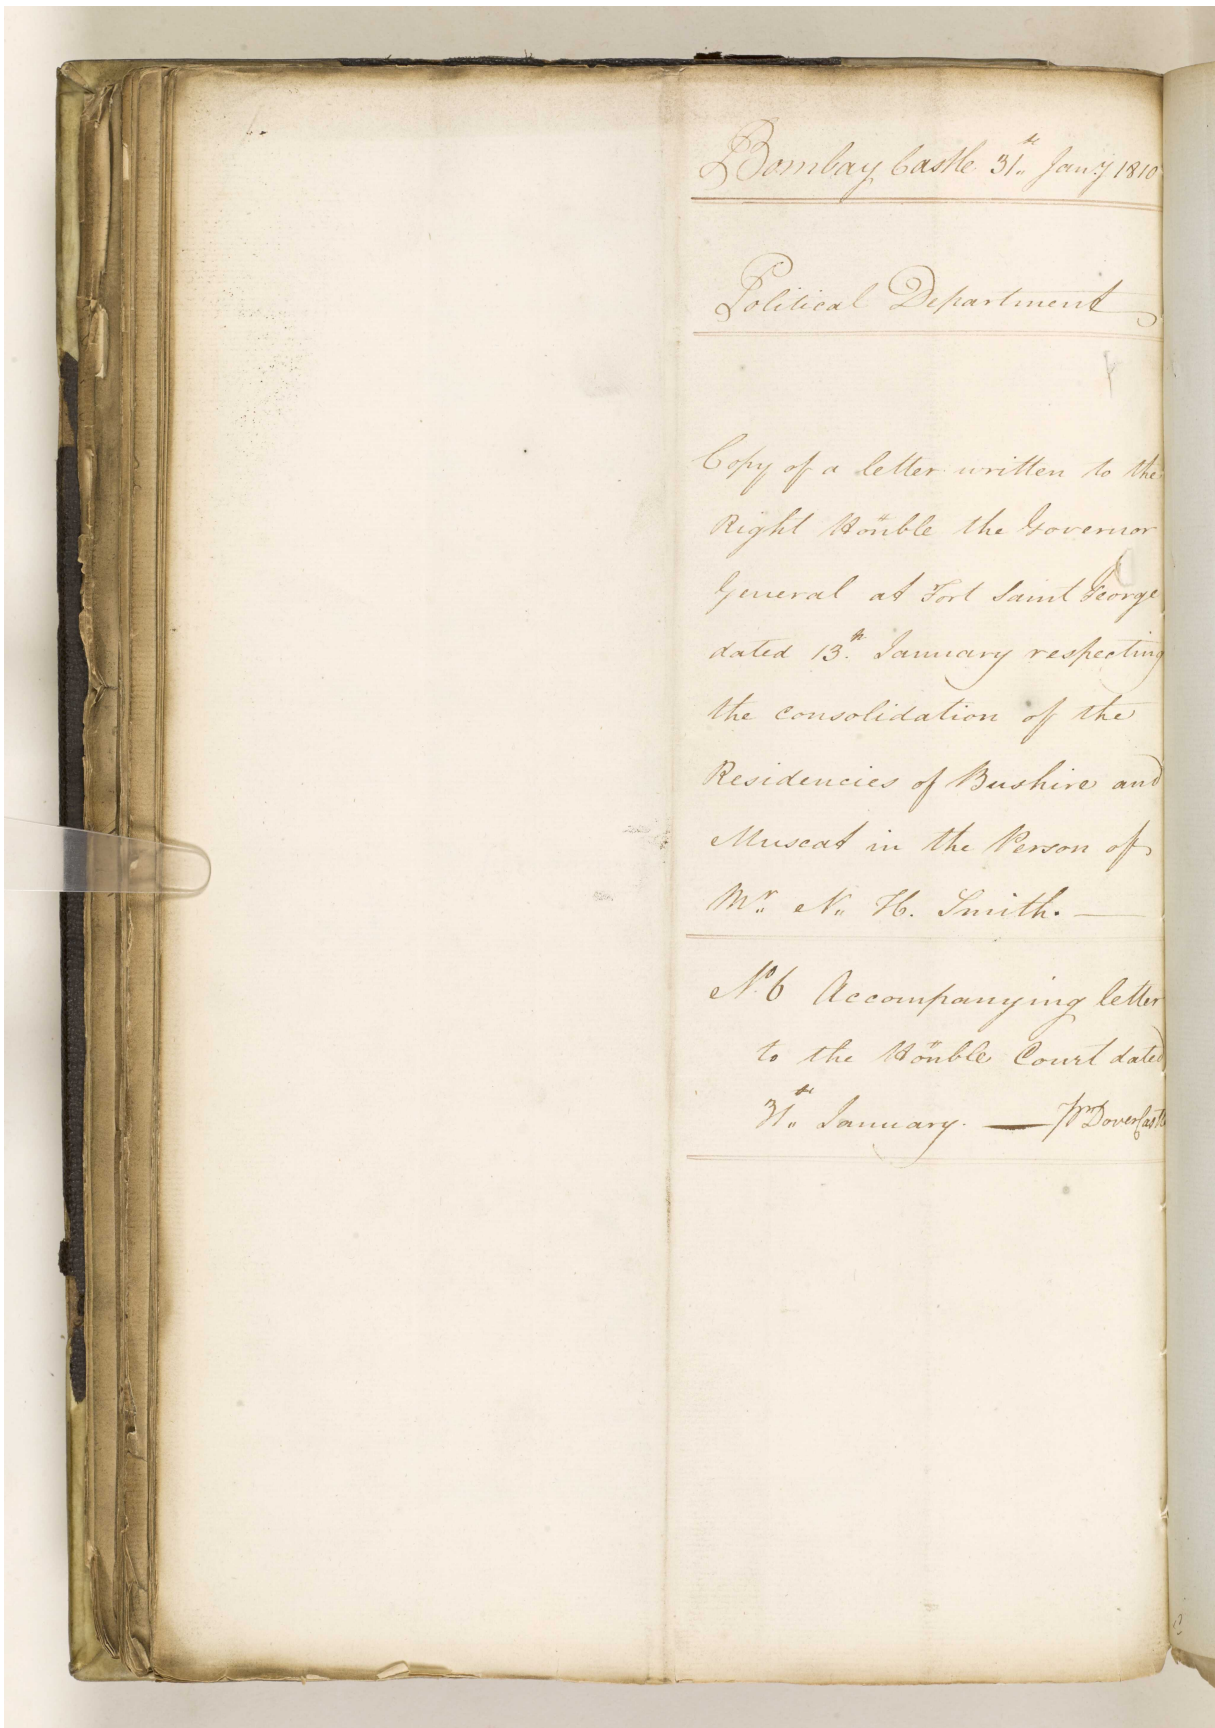 Bombay Castle 31st Jany 1810
Political Department
Copy of a letter written to the
Right Honble the Governor
General at Fort Saint George
dated 13th January respecting
the consolidation of the
Residencies of Bushire and
Muscat in the Person of
Mr. N. H. Smith. —
No. 6 Accompanying letter
to the Honble Court dated
31st January. — Pr Dover Castle